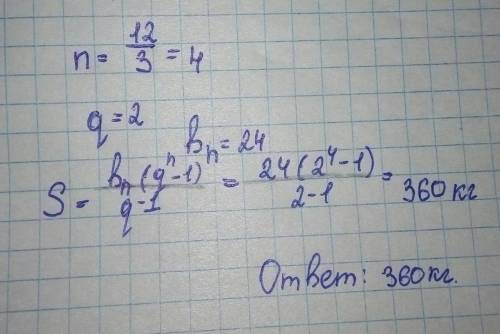 n = 12/3 = 4
q = 2
bₙ = 24
S = bₙ(qⁿ-1)/q-1 = 24(2⁴-1)/2-1 = 360 кг
Ответ: 360 кг.